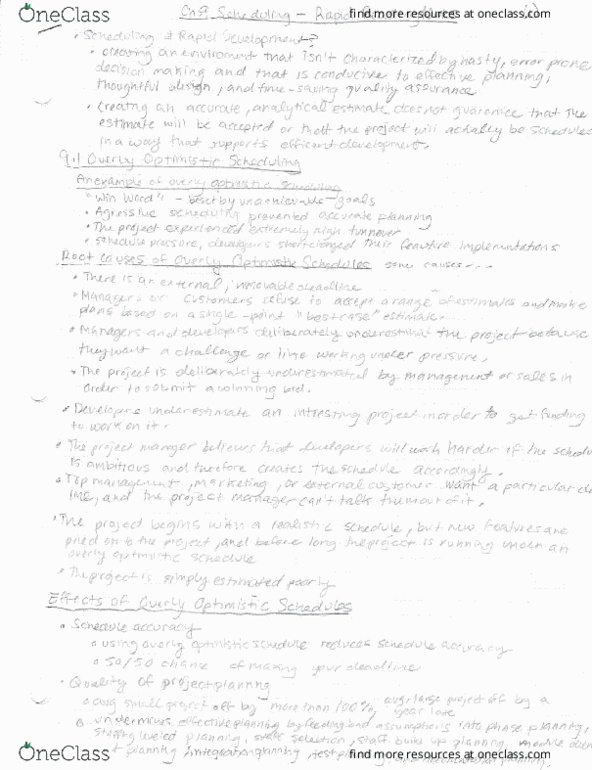 OneClass find more resources at oneclass.com
Ch9 Scheduling - Rapid
• Scheduling & Rapid Development?
• creating an enviroment that isn't characterized by hasty, error prone
decision making and that is conducive to effective planning,
thoughtful design, and time-saving quality assurance
• creating an accurate, analytical estimate does not guarantee that the
estimate will be accepted or that the project will actually be scheduled
in a way that supports efficient development.
9.1 Overly Optimistic Scheduling
An example of overly optimistic scheduling
"Win Word" - beset by unachievable goals
• Agressive scheduling prevented accurate planning
• The project experienced extremely high turnover
• schedule pressure, developers shortchanged their feature implementations
Root causes of Overly Optimistic Schedules some causes...
• There is an external, immovable deadline
• Managers or customers refuse to accept a range of estimates and make
plans based on a single-point "best case" estimate.
• Managers and developers deliberately underestimate the project because
they want a challenge or like working under pressure.
• The project is deliberately underestimated by management or sales in
order to submit a winning bid.
• Developers underestimate an intresting project in order to get funding
to work on it.
• The project manager believes that developers will work harder if the schedu
is ambitious and therefore creates the schedule accordingly.
• Top management, marketing, or external customer want a particular de
line, and the project manager can't talk them out of it.
• The project begins with a realistic schedule, but new features are
piled on to the project, and before long the project is running under an
overly optimistic schedule
• The project is simply estimated poorly
Effects of Overly Optimistic Schedules
• Schedule accuracy
o using overly optimistic schedule reduces schedule accuracy
o 50/50 chance of making your deadline
• Quality of project planning
o avg small project off by more than 100%, avg large project off by a
year late
o undermines effective planning by feeding bad assumptions into phase planning,
staffing level planning, staff selection, staff build up planning, module
t planning, integration planning, test planning
OneClass find more resources at oneclass.com